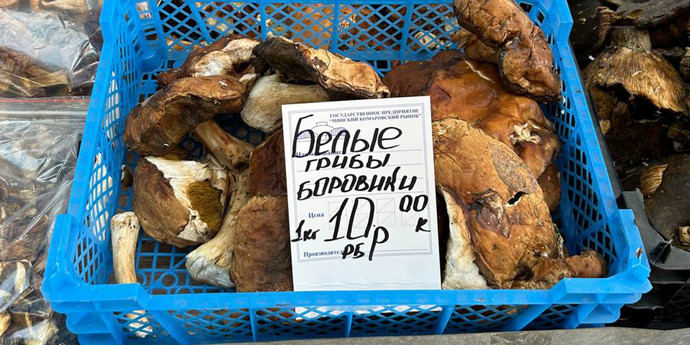 ГОСУДАРСТВЕННОЕ ПРЕДПРИЯТИЕ
"МИНСКИЙ КОМАРОВСКИЙ РЫНОК"
Белые
ГРИБЫ
БОРОВИКИ
Цена
1кг 10р 00к
РБ
Производитель